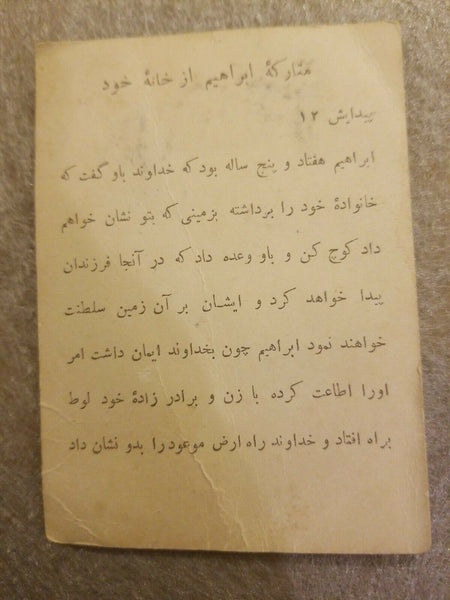 متارکهٔ ابراهیم از خانهٔ خود
پیدایش ۱۲
ابراهیم هفتاد و پنج ساله بود که خداوند باو گفت که
خانوادهٔ خود را برداشته بزمینی که بتو نشان خواهم
داد کوچ کن و باو وعده داد که در آنجا فرزندان
پیدا خواهد کرد و ایشان بر آن زمین سلطنت
خواهند نمود ابراهیم چون بخداوند ایمان داشت امر
اورا اطاعت کرده با زن و برادر زادهٔ خود لوط
براه افتاد و خداوند راه ارض موعود را بدو نشان داد